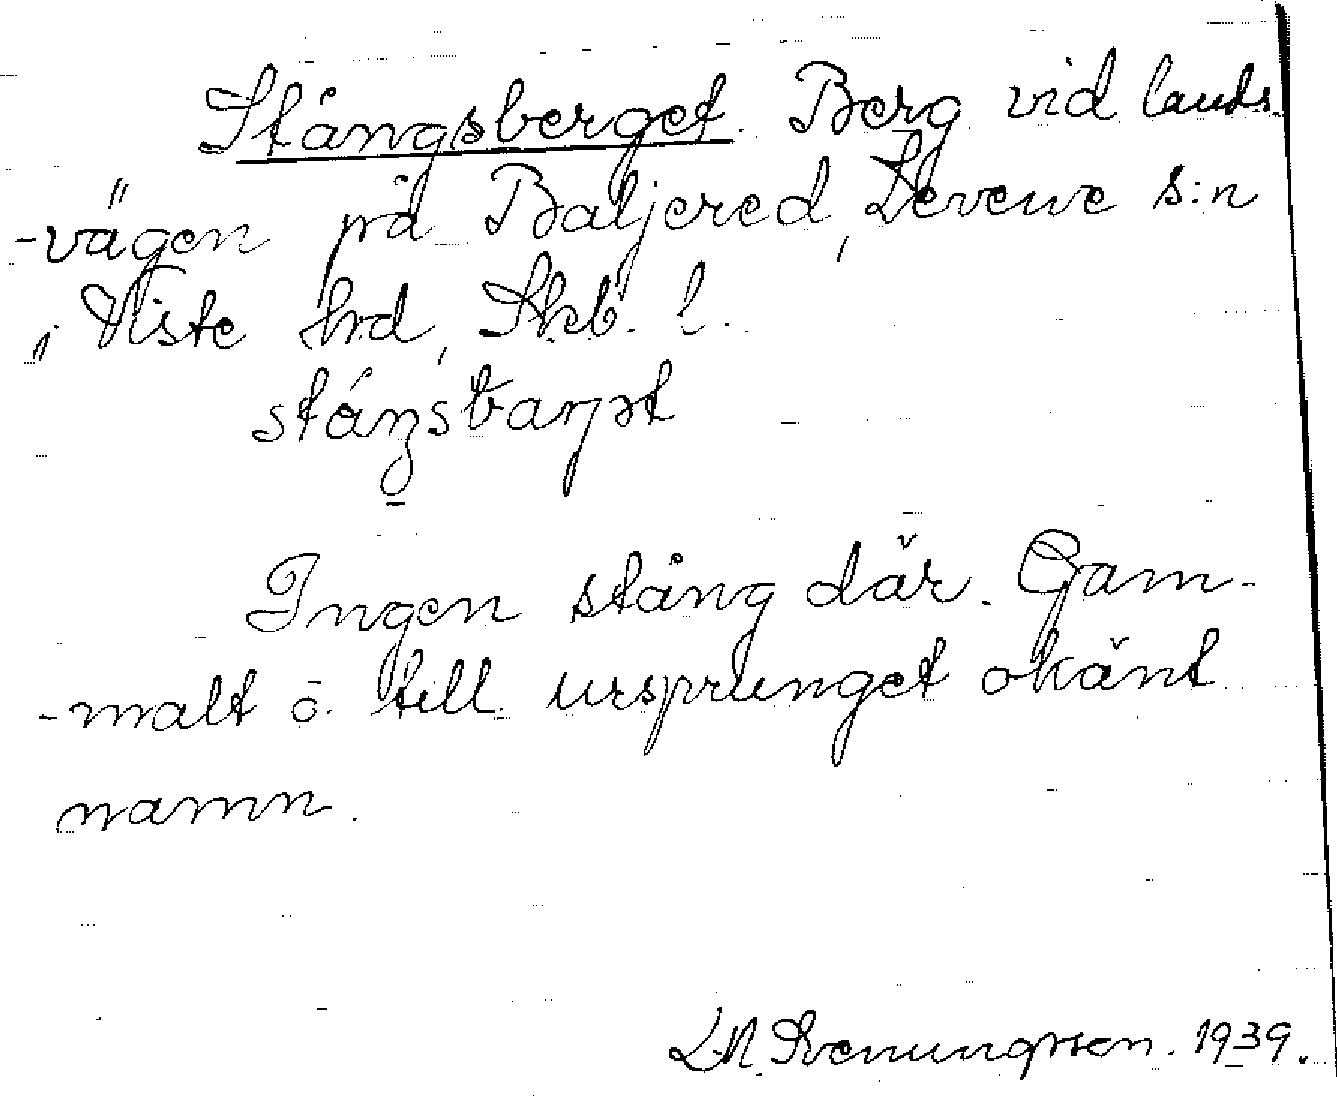 Stångsberget. Berg vid lands
-vägen på Baljered, Levene s:n
i Viste hrd, Skb. l.
Ingen stång där. Gam-
-malt o. till ursprunget okänt
namn.
L.N. Svenungsson. 1939.